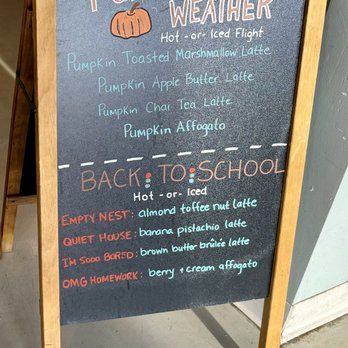 WEATHER
Hot -or- Iced Flight
Pumpkin Toasted Marshmallow Latte
Pumpkin Apple Butter Latte
Pumpkin Chai Tea Latte
Pumpkin Affogato
BACK:TO:SCHOOL
Hot -or- Iced
EMPTY NEST: almond toffee nut latte
QUIET HOUSE: banana pistachio latte
I'M SOOO BORED: brown butter brûlée latte
OMG HOMEWORK: berry + cream affogato